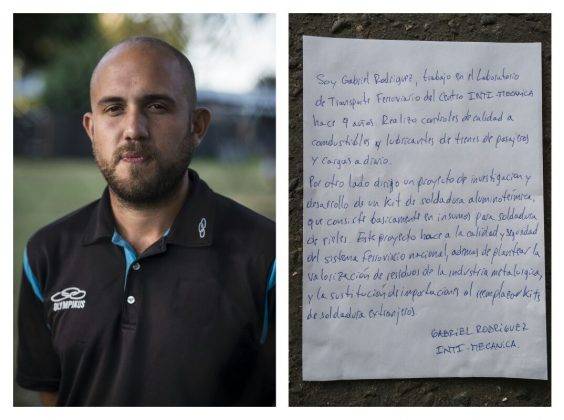 OLYMPIKUS
Soy Gabriel Rodriguez, trabajo en el Laboratorio
de Transporte Ferroviario del Centro INTI-MECANICA
hace 9 años. Realizo controles de calidad a
combustibles y lubricantes de trenes de pasajeros
y cargas a diario.
Por otro lado dirijo un proyecto de investigacion y
desarrollo de un kit de soldadura aluminotérmica,
que consiste basicamente en insumos para soldadura
de rieles. Este proyecto hace a la calidad y seguridad
del sistema Ferroviario nacional, ademas de plantear la
valorización de residuos de la industria metalurgica,
y la sustitución de importaciones al reemplazar kits
de soldadura extranjeros.
GABRIEL RODRIGUEZ
INTI-MECANICA.